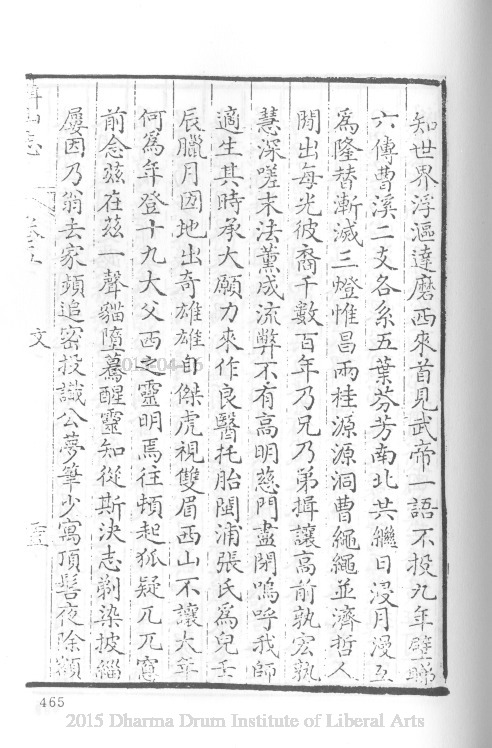 知世界浮漚達磨西來首見武帝一語不投九年壁
六傳曹溪二支各系五葉芬芳南北共繼日浸月漫互
為隆替漸滅三燈惟昌兩桂源源洞曹繩繩並濟哲人
間出每光彼裔千數百年乃兄乃弟揖讓高前孰宏孰
慧深嗟末法薰成流弊不有高明慈門盡閉嗚呼我師
適生其時承大願力來作良醫托胎閩浦張氏為兒壬
辰臘月囡地出奇雄雄自傑虎視雙眉西山不讓大年
何為年登十九大父西之靈明焉往頓起狐疑兀兀窻
前念茲在茲一聲貓墮驀醒靈知從斯決志剃染披緇
屢因乃翁去家頻追容投識公夢筆少寓頂髻夜除
卷五
文
465
2015 Dharma Drum Institute of Liberal Arts